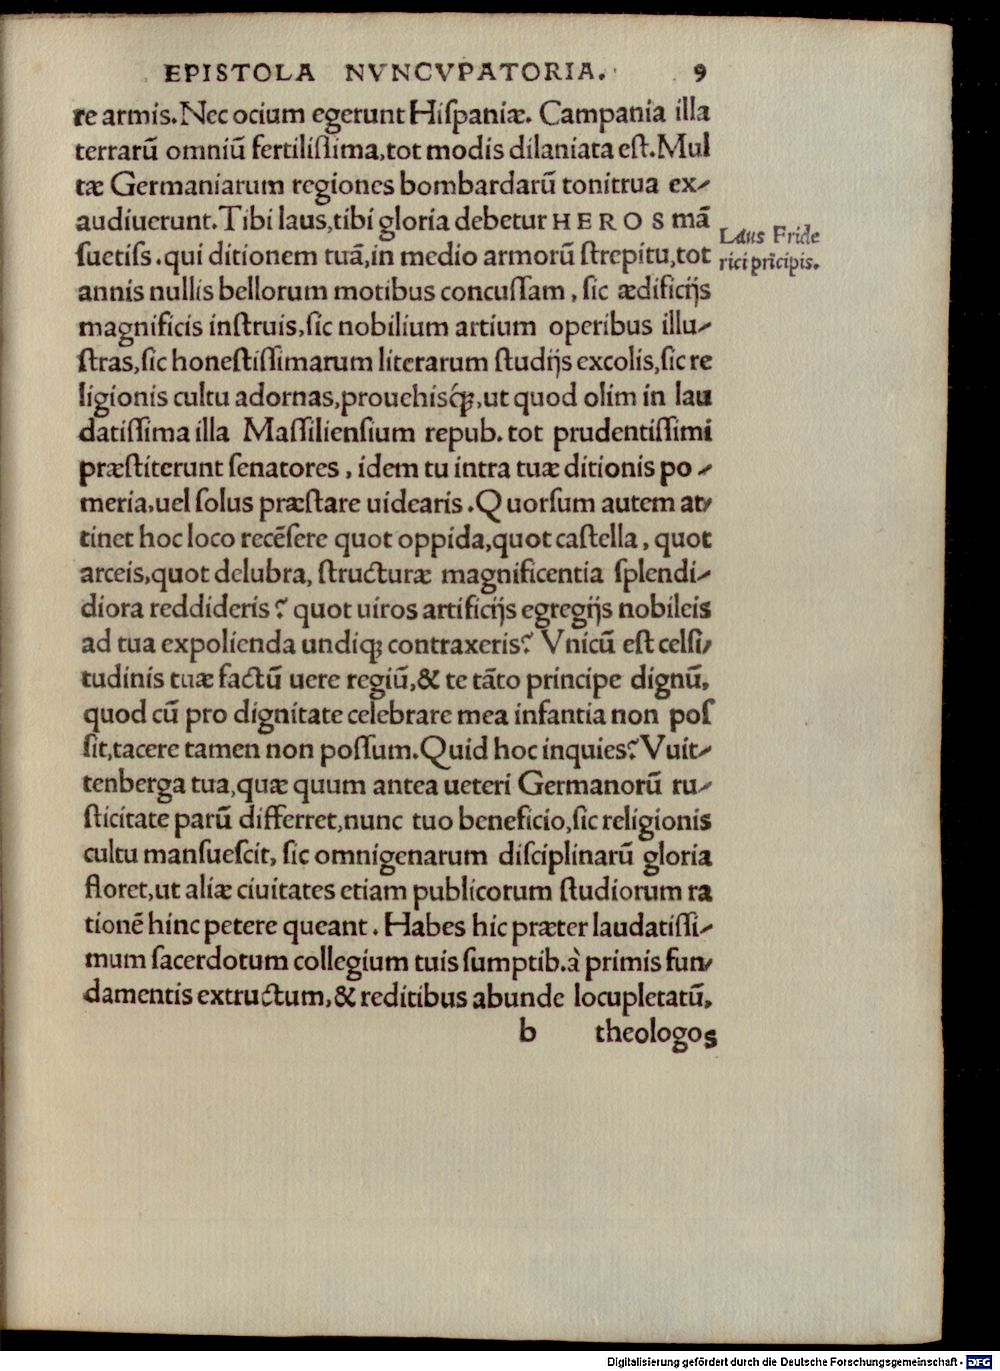 EPISTOLA NVNCVPATORIA. 9
re armis. Nec ocium egerunt Hiſpaniæ. Campania illa
terrarū omniū fertiliſſima, tot modis dilaniata eſt. Mul
tæ Germaniarum regiones bombardarū tonitrua ex-
audiuerunt. Tibi laus, tibi gloria debetur HEROS mā
ſuetiſs. qui ditionem tuā, in medio armorū ſtrepitu, tot
Laus Fride
rici prīcipis.
annis nullis bellorum motibus concuſſam, ſic ædificijs
magnificis inſtruis, ſic nobilium artium operibus illu-
ſtras, ſic honeſtiſſimarum literarum ſtudijs excolis, ſic re
ligionis cultu adornas, prouehisq́ꝫ, ut quod olim in lau
datiſſima illa Maſſilienſium repub. tot prudentiſſimi
præſtiterunt ſenatores, idem tu intra tuæ ditionis po-
meria, uel ſolus præſtare uidearis. Quorſum autem at-
tinet hoc loco recēſere quot oppida, quot caſtella, quot
arceis, quot delubra, ſtructuræ magnificentia ſplendi-
diora reddideris? quot uiros artificijs egregijs nobileis
ad tua expolienda undiqꝫ contraxeris? Vnicū eſt celſi-
tudinis tuæ factū uere regiū, & te tāto principe dignū,
quod cū pro dignitate celebrare mea infantia non poſ
ſit, tacere tamen non poſſum. Quid hoc inquies? Vuit-
tenberga tua, quæ quum antea ueteri Germanorū ru-
ſticitate parū differret, nunc tuo beneficio, ſic religionis
cultu manſueſcit, ſic omnigenarum diſciplinarū gloria
floret, ut aliæ ciuitates etiam publicorum ſtudiorum ra
tionē hinc petere queant. Habes hic præter laudatiſſi-
mum ſacerdotum collegium tuis ſumptib. à primis fun-
damentis extructum, & reditibus abunde locupletatū,
b theologos
Digitalisierung gefördert durch die Deutsche Forschungsgemeinschaft - DFG